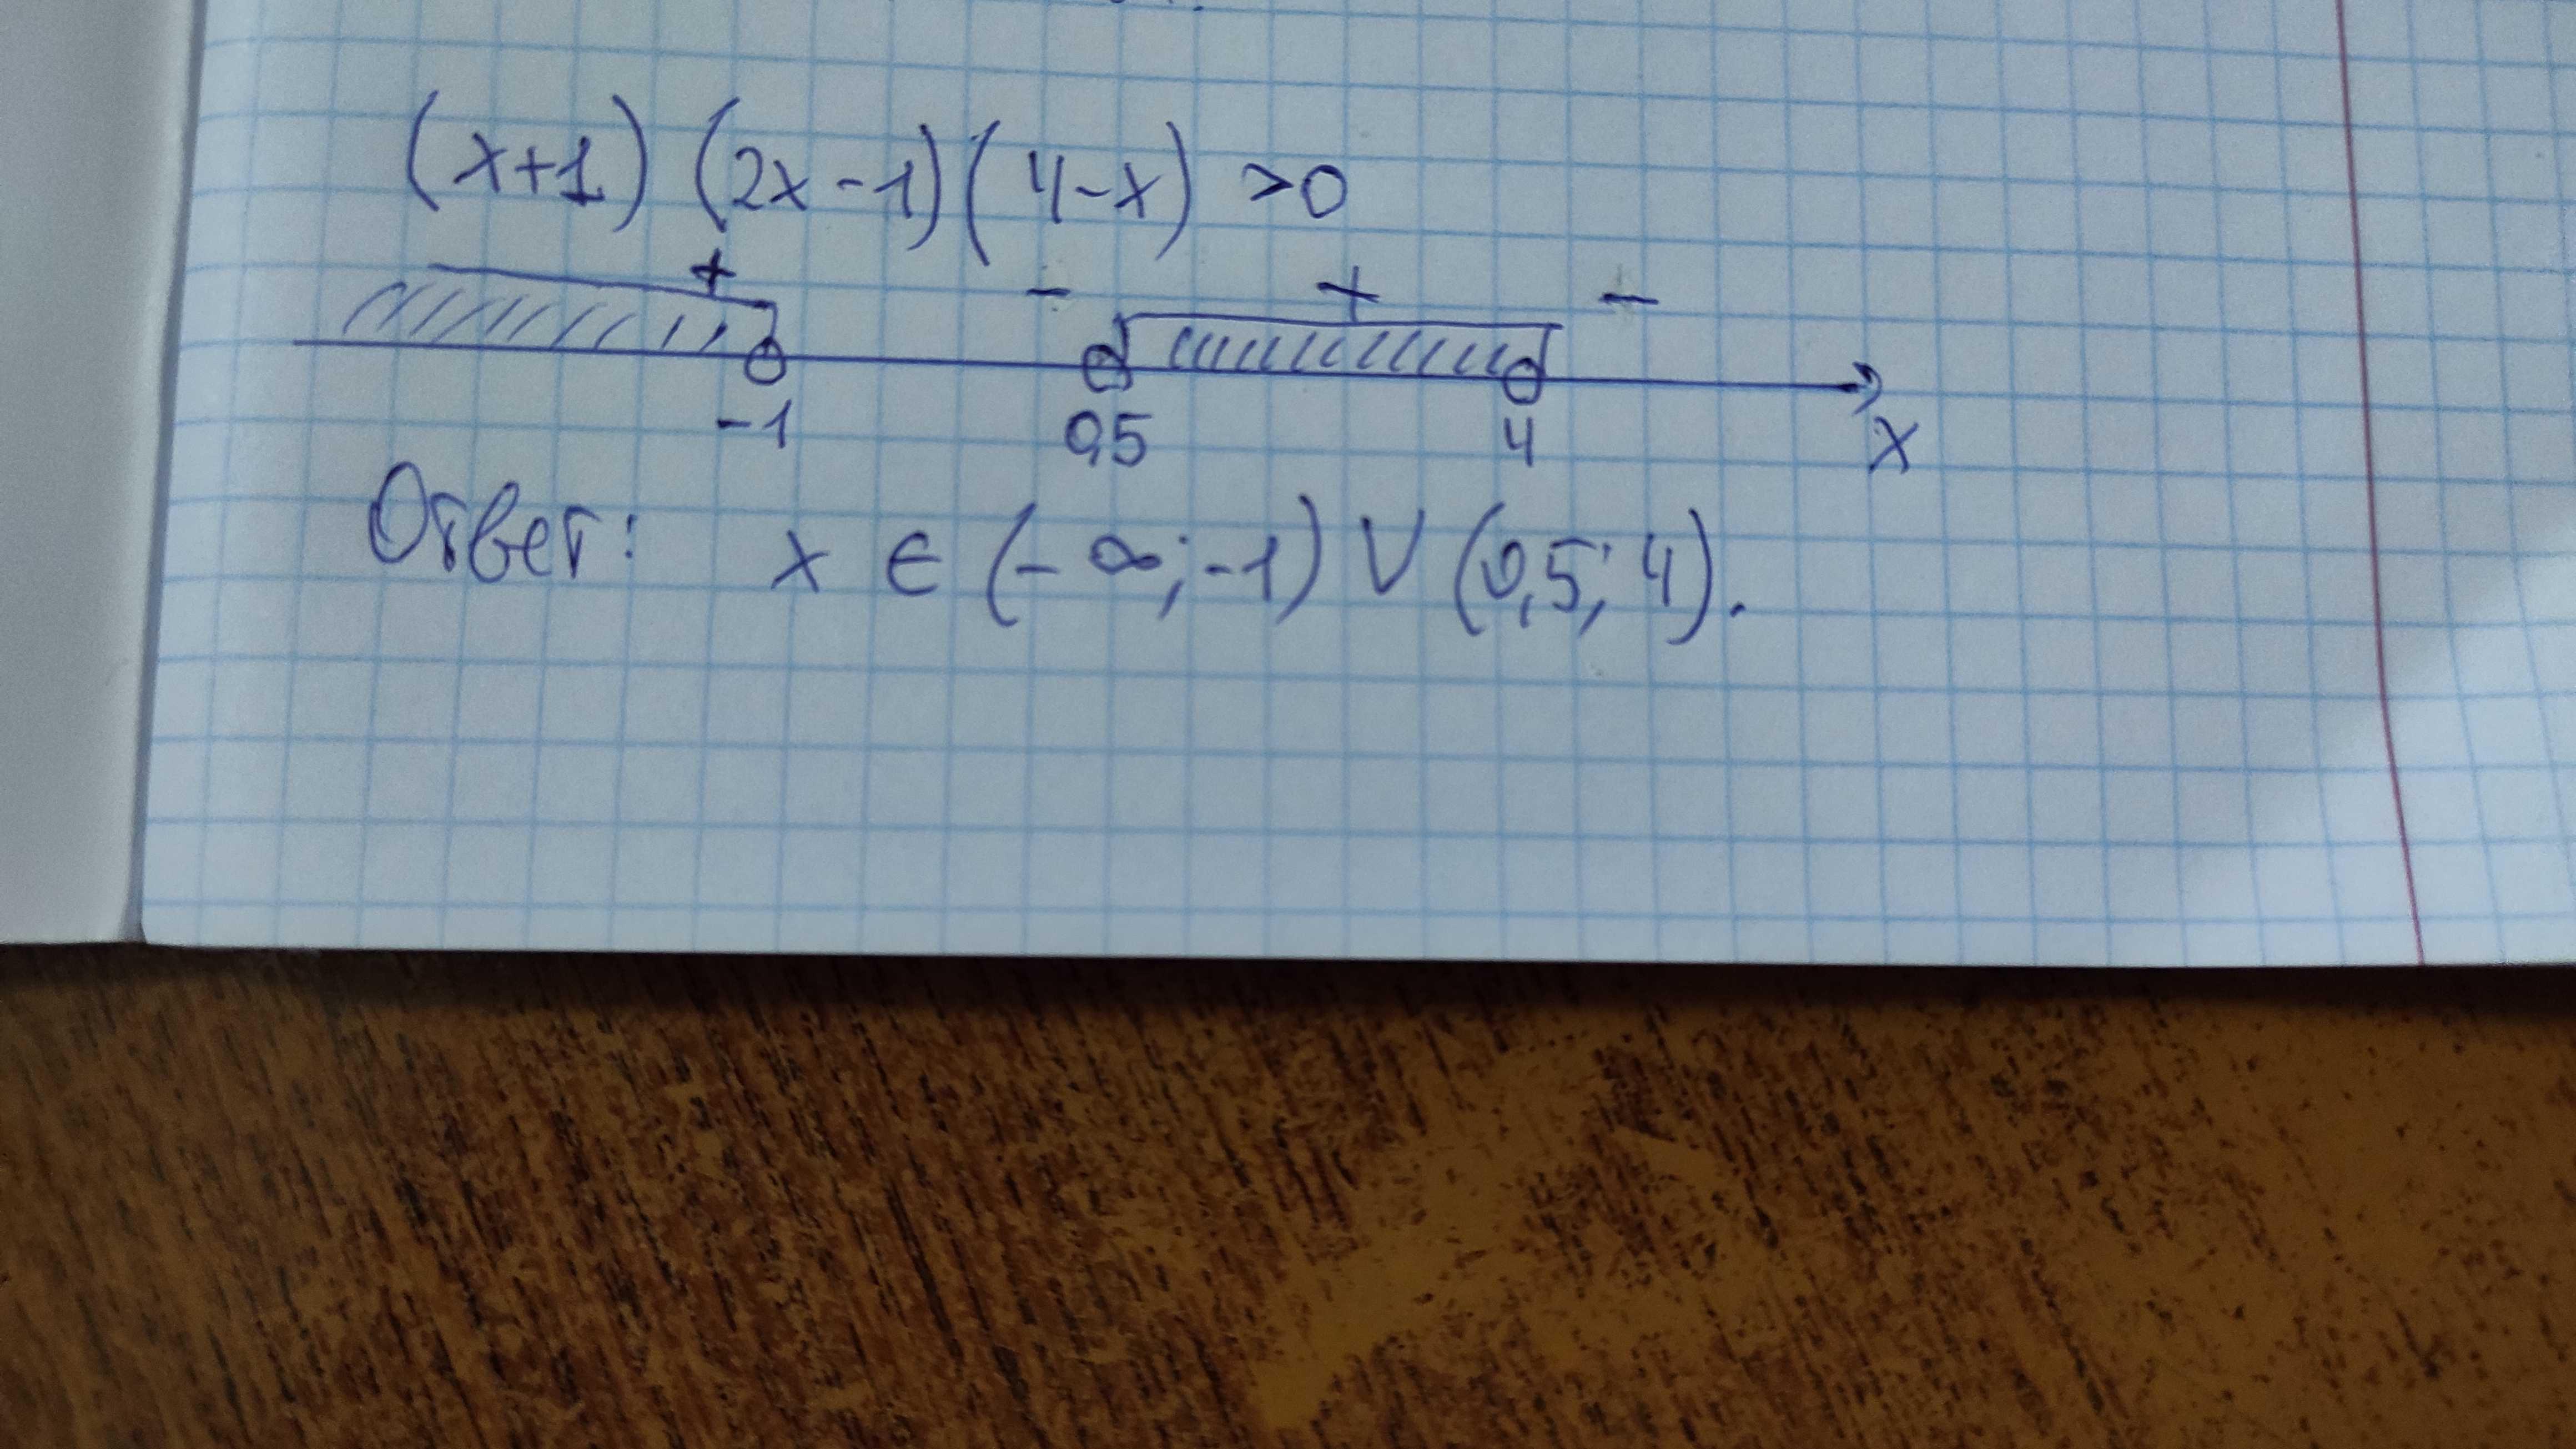 (x+1) (2x-1)(4-x) >0
+ - + -
-1 0,5 4 x
Ответ: x ∈ (-∞; -1) ∪ (0,5; 4).